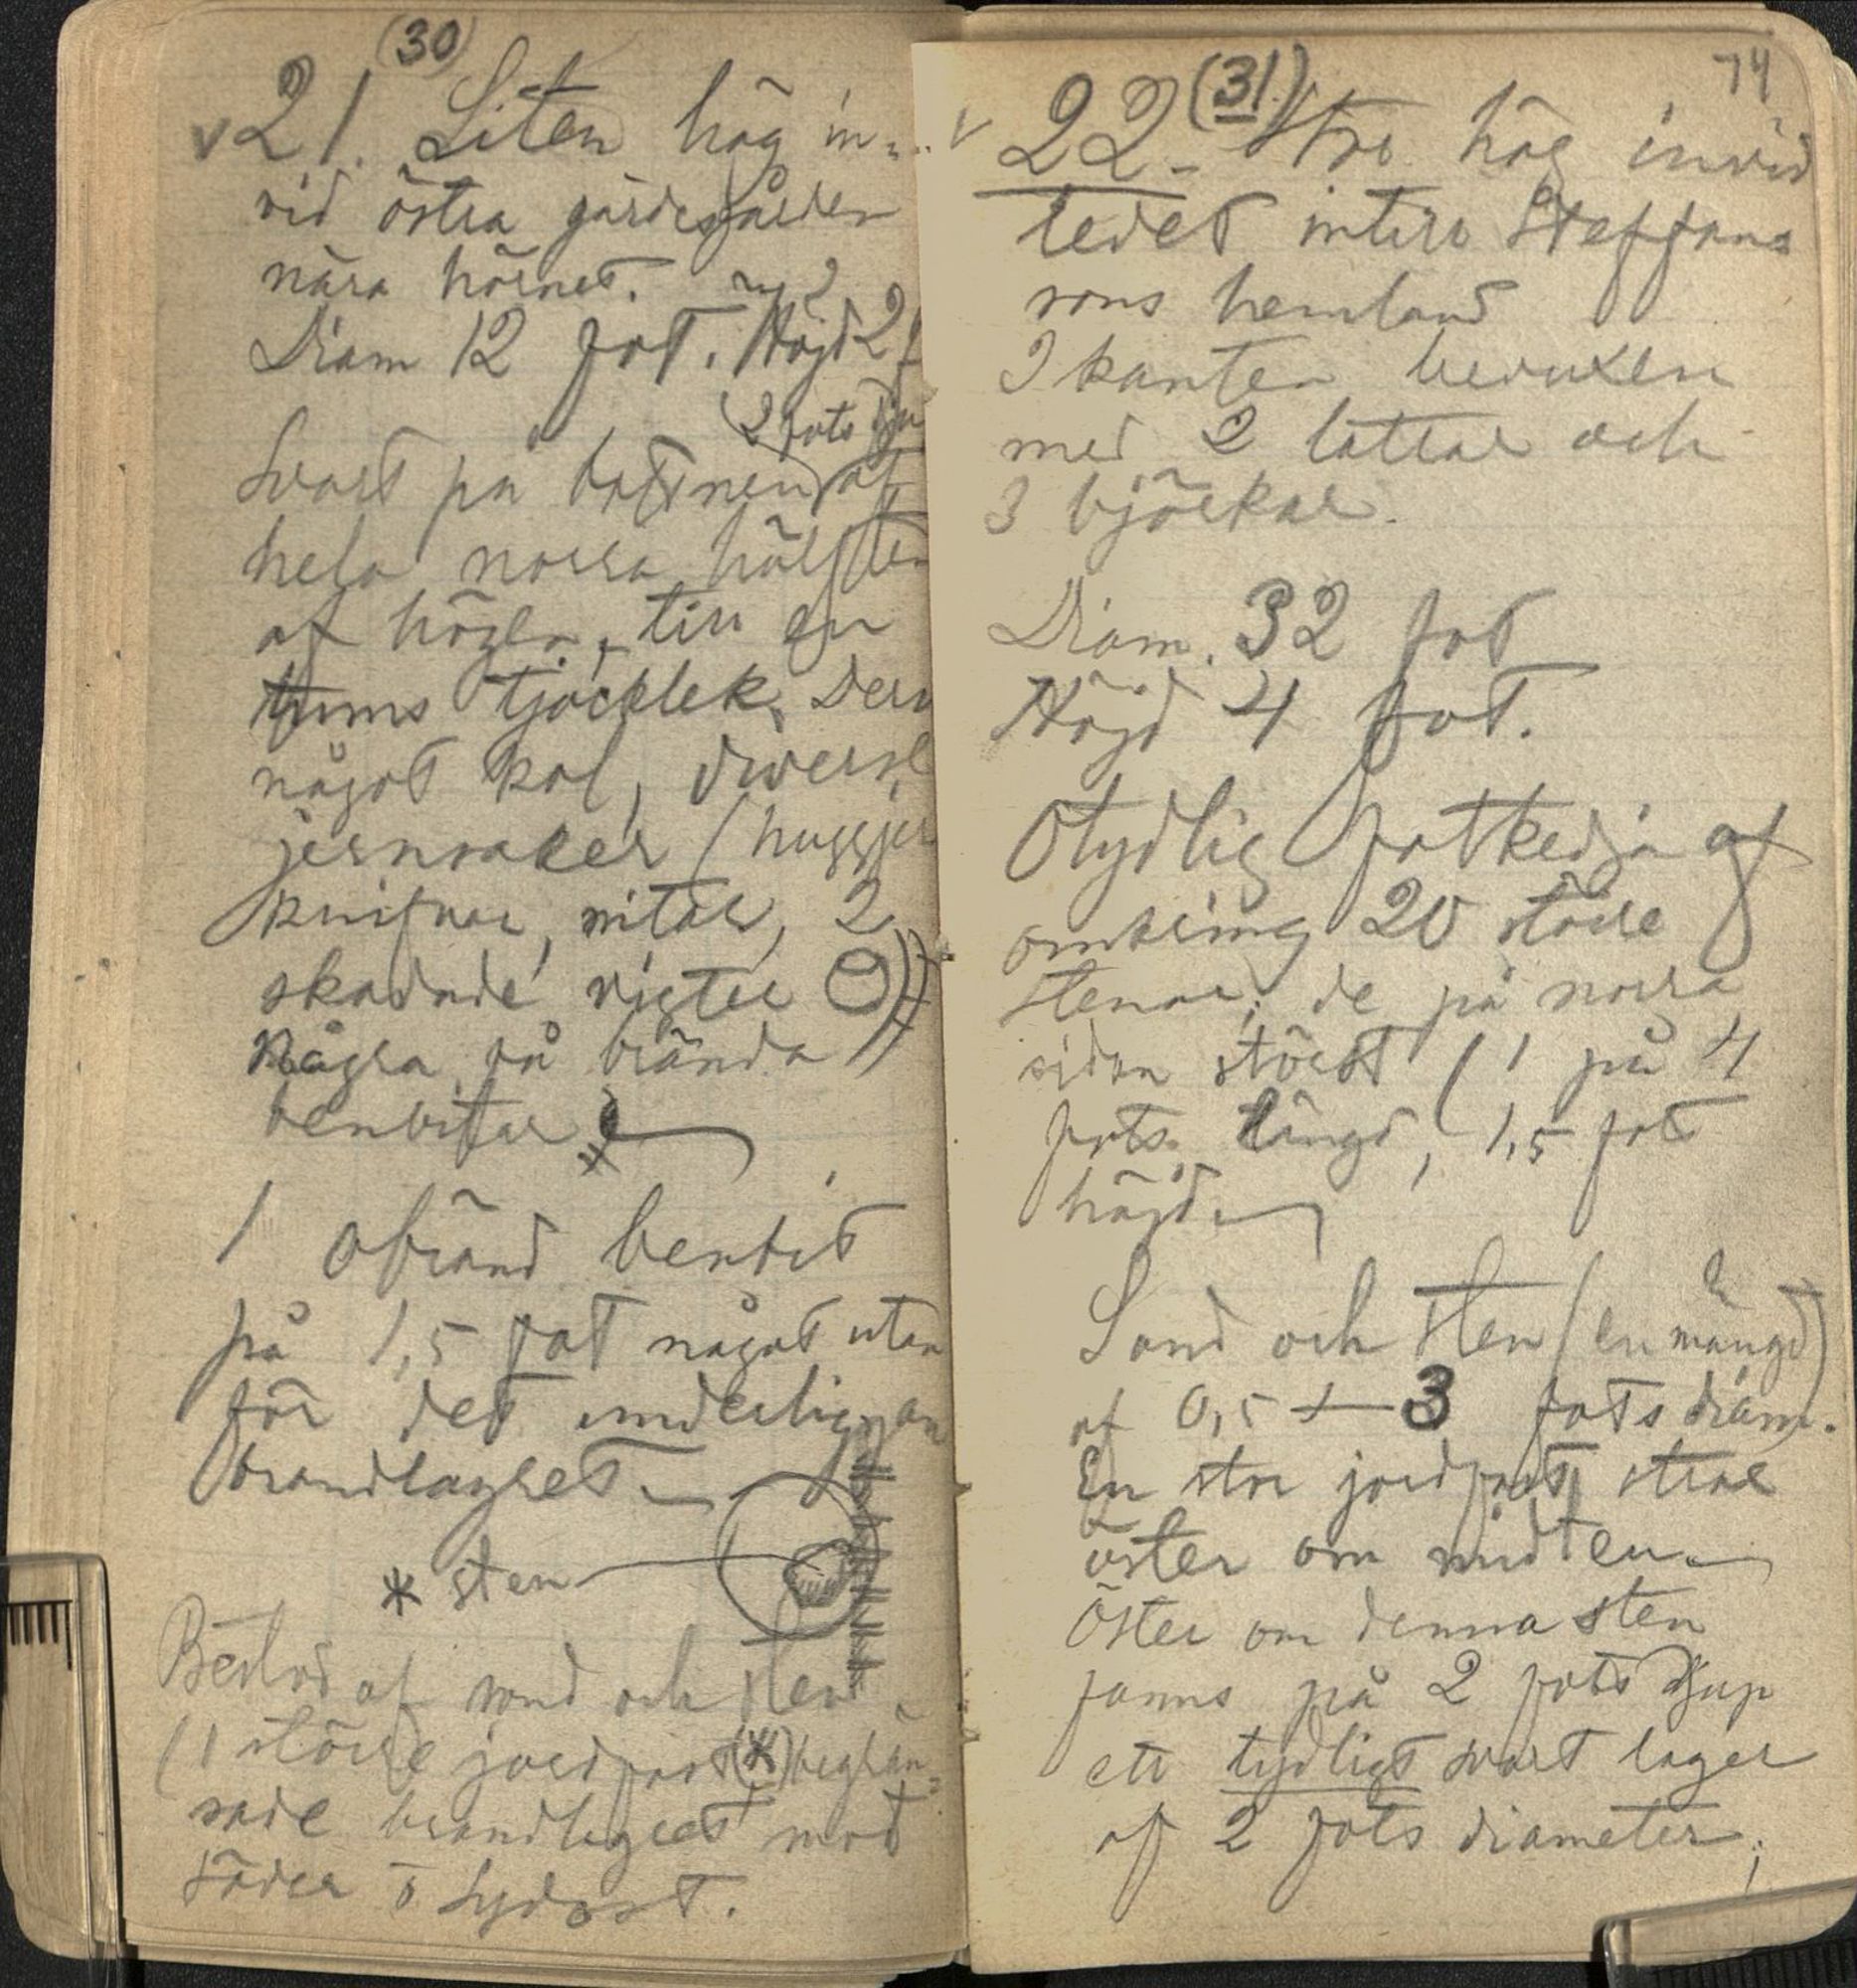 (30)
v 21. Liten hög in-
vid östra gärdesgården
nära hörnet.
Diam 12 fot. Höjd 2 f
(2 fots dju
Svart på bottnen af
hela norra hälften
af högen, till en
tums tjocklek. Deri
något kol, diverse
jernsaker (huggjer
knifvar, nitar, 2
skadade vigter
Några få brända
benbitar
1 obränd benbit
på 1,5 fot något utan
för det underliggan
brandlagret.
* sten
Bestod af sand och sten
(1 större jordfast (*) begrän=
sade brandlagret mot
söder o sydost.
74
v 22. (31.) Stor hög invid
ledet intill Steffans
sons hemland
I kanten bevuxen
med 2 tallar och
3 björkar.
Diam. 32 fot
Höjd 4 fot.
Otydlig fotkedja af
omkring 20 större
stenar; de på norra
sidan störst (1 på 4
fots längd, 1,5 fot
höjd
Sand och sten (en mängd)
af 0,5 + 3 fots diam.
En stor jordfast strax
öster om midten.
Öster om denna sten
fanns på 2 fots djup
ett tydligt svart lager
af 2 fots diameter;